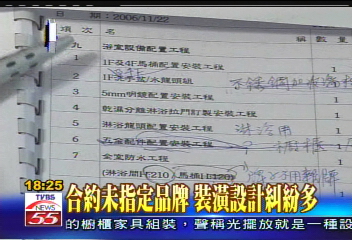 日 期：2006/11/22
項 次 名 稱 數 量
九 浴室設備配置工程
1 1F及4F馬桶配置安裝工程 1
2 1F 水龍頭組
3 5mm明鏡配置安裝工程 1
4 乾濕分離淋浴拉門訂製安裝工程 1
5 淋浴龍頭配置安裝工程 淋浴用 1
6 五金配件配置安裝工程 1
7 全室防水工程 1
(淋浴間H:210 / 馬桶H:120)
18:25
TVBS
NEWS
55
合約未指定品牌 裝潢設計糾紛多
的櫥櫃家具組裝，聲稱光擺放就是一種設